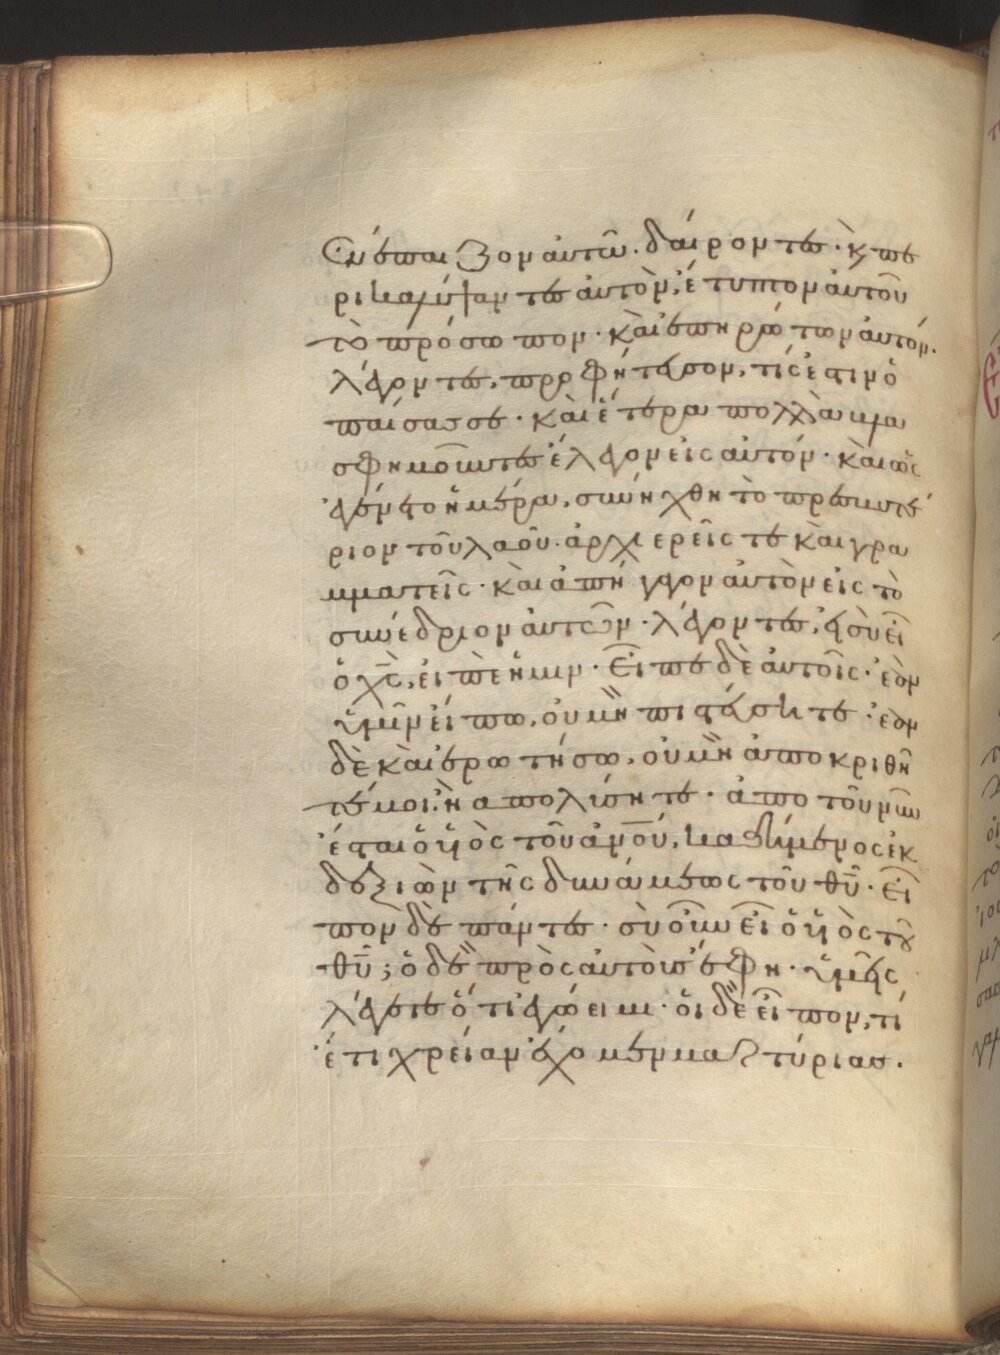 ἐνέπαιζον αυτῶ. δαίροντες· κ̀ πε
ρικαλύψαντες αυτὸν, ἔτυπτον αυτοῦ
τὸ πρόσωπον· κὰι ἐπηρώτων αυτόν·
λέγοντες, προφήτευσον, τίς ἐστιν ὁ
παίσας σε· κὰι ἕτερα πολλὰ βλα
σφημοῦντες ἔλεγον εἰς αυτόν· κὰι ὡς
ἐγένετο ἡμέρα, συνήχθη τὸ πρεσβυτέ
ριον τοῦ λαοῦ· ἀρχιερεῖς τε κὰι γρα
μματεῖς· κὰι ἀπήγαγον αυτὸν εἰς τὸ
συνέδριον ἁυτῶν· λέγοντες, εἰ σὺ εἶ
ὁ χ̅ς̅, ἐιπὲ ἡμῖν· Εἶπε δὲ αυτοῖς· ἐὰν
ὑμῖν ἐίπω, ου μὴ πιστεύσητε· ἐὰν
δὲ κὰι ἐρωτήσω, ου μὴ ἀποκριθῆ
τέ μοι, ἢ απολύσητε· ἀπο τοῦ νῦν
ἔσται ὁ ὑὸς τοῦ ἀν̅ο̅υ̅, καθήμενος ἐκ
δεξιῶν τῆς δυνάμεως τοῦ θ̅υ̅· εἶ
πον δὲ πάντες· σὺ οῦν εἶ ὁ ὑὸς τοῦ
θ̅υ̅; ὁ δὲ πρὸς αυτοὺς ἔφη· ὑμεῖς
λέγετε ὅτι ἐγώ ειμι· ὁι δὲ εἶπον, τί
ἔτι χρείαν ἔχομεν μαρτύριας.